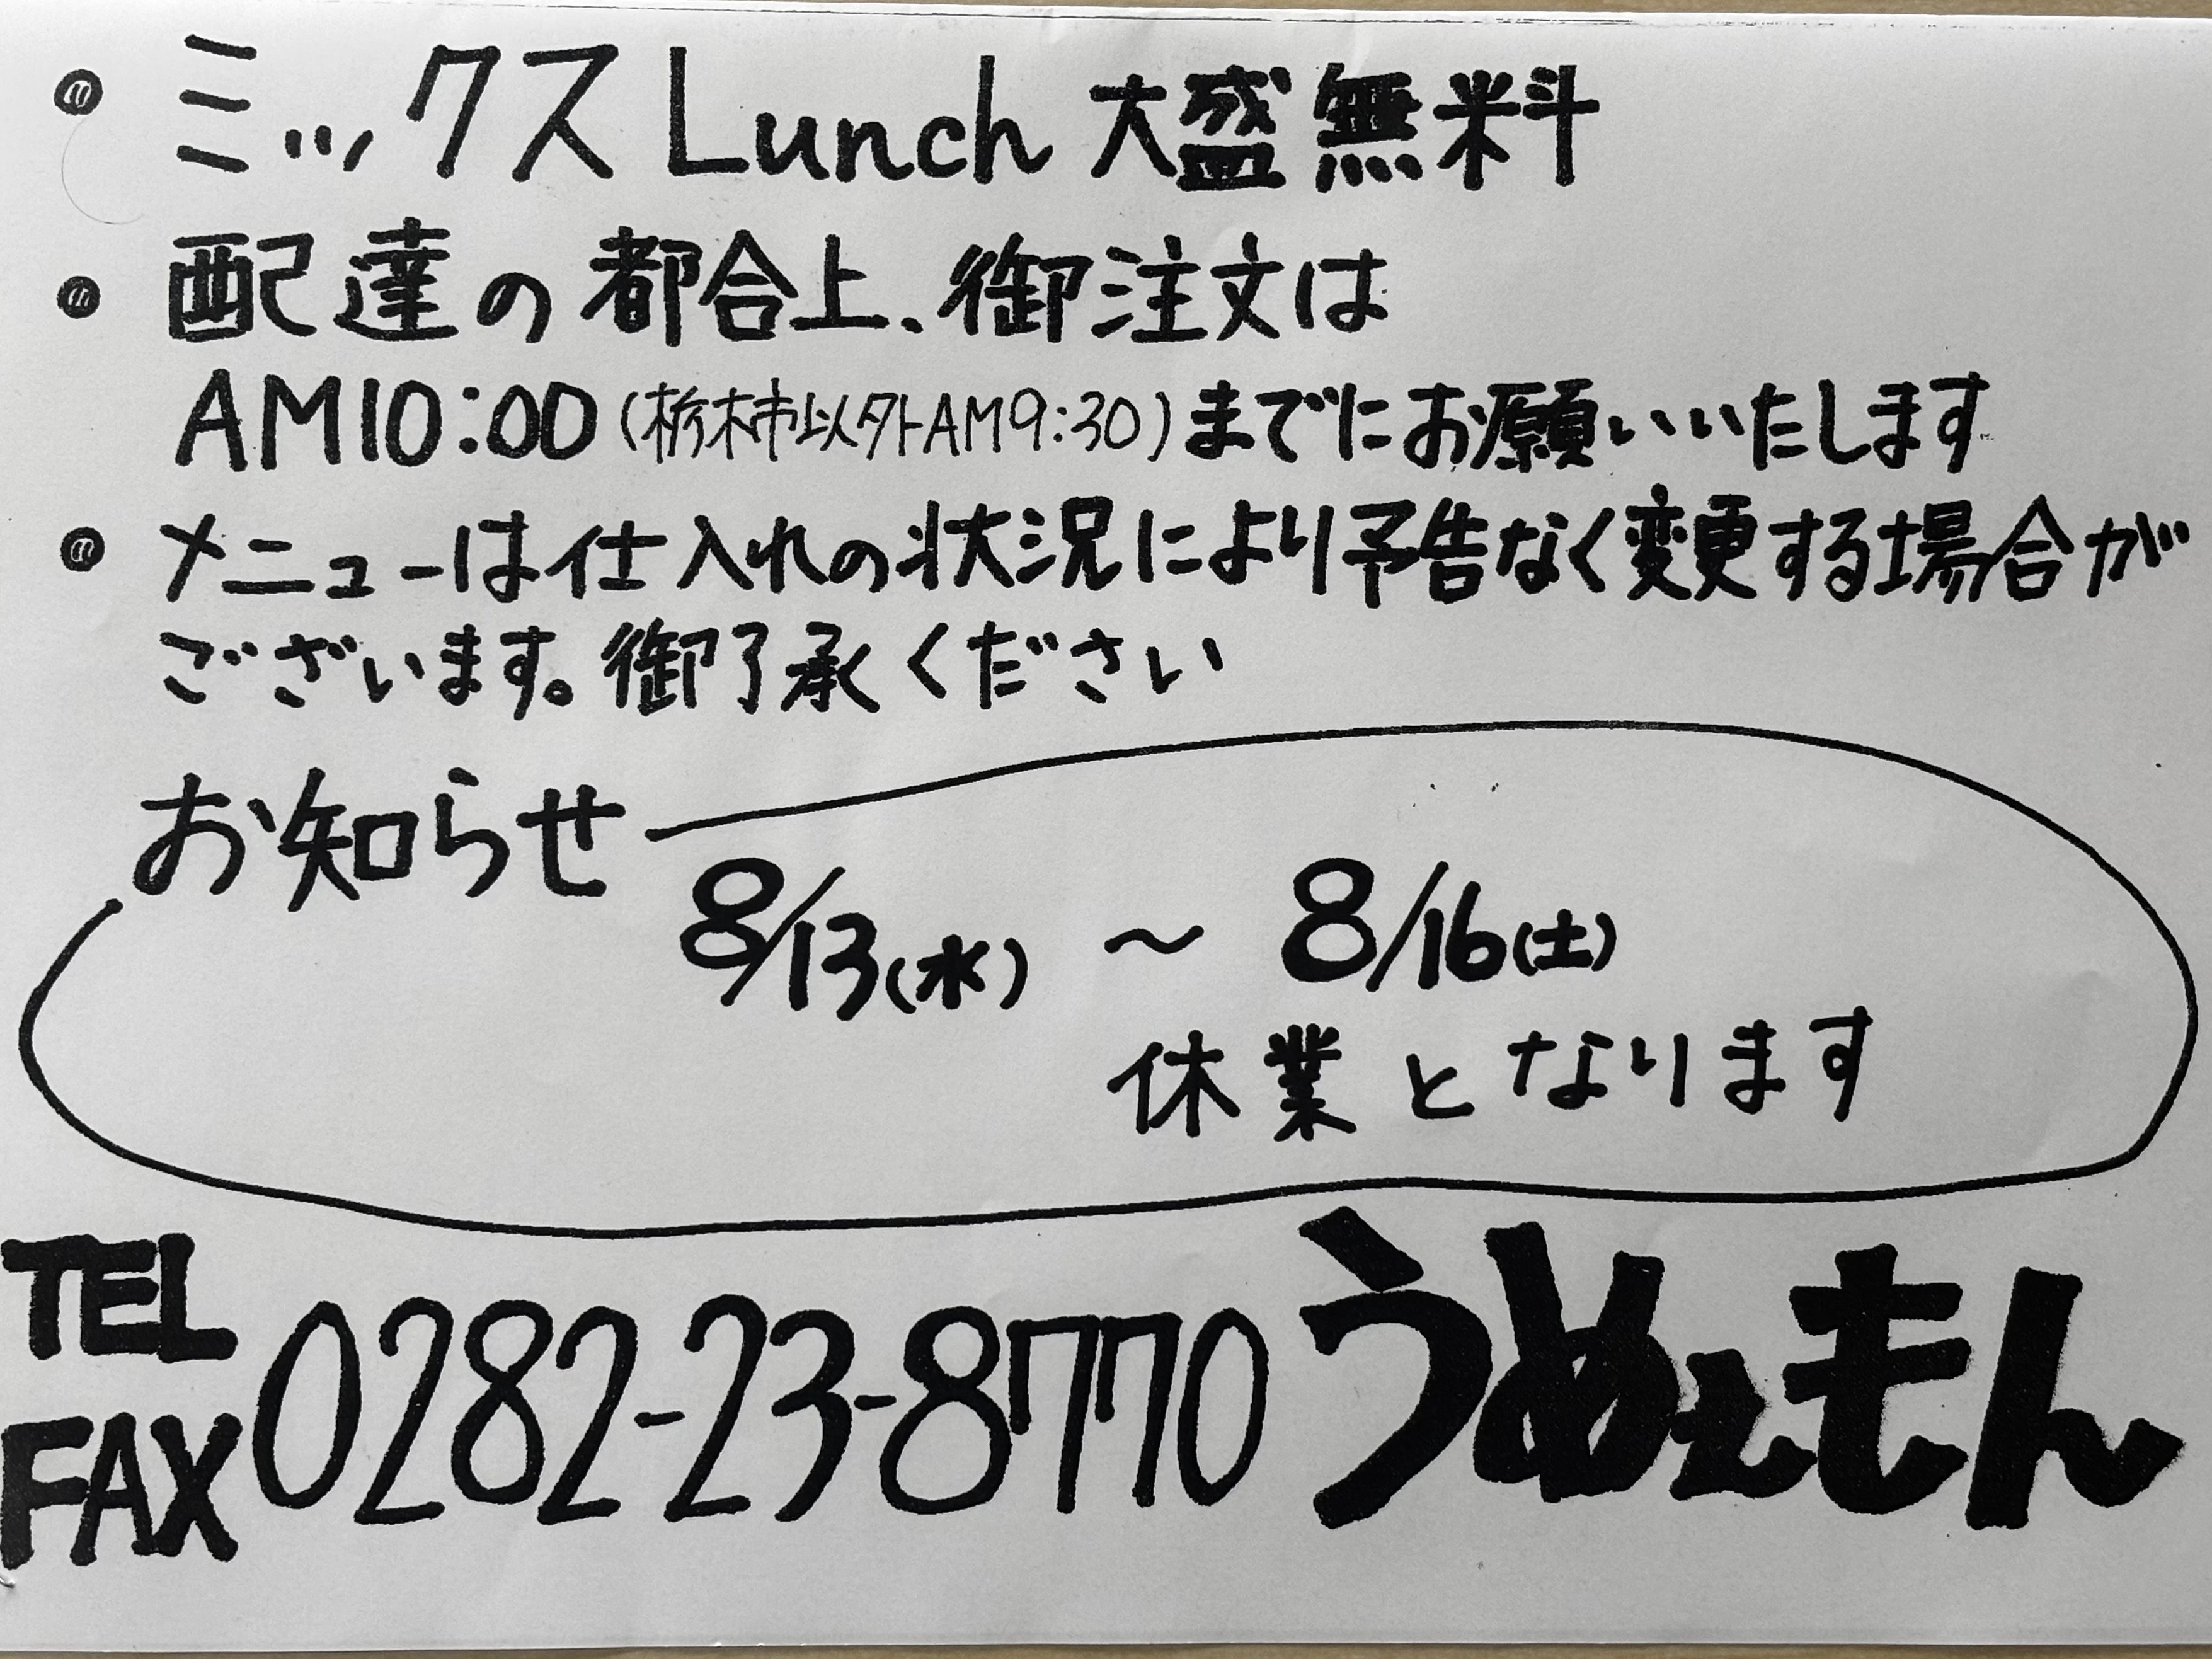 • ミックスLunch 大盛無料
• 配達の都合上、御注文は
AM10:00(栃木市以外AM9:30)までにお願いいたします
• メニューは仕入れの状況により予告なく変更する場合が
ございます。御了承ください
お知らせ
8/13(水) ～ 8/16(土)
休業となります
TEL
FAX 0282-23-8770 うめぇもん